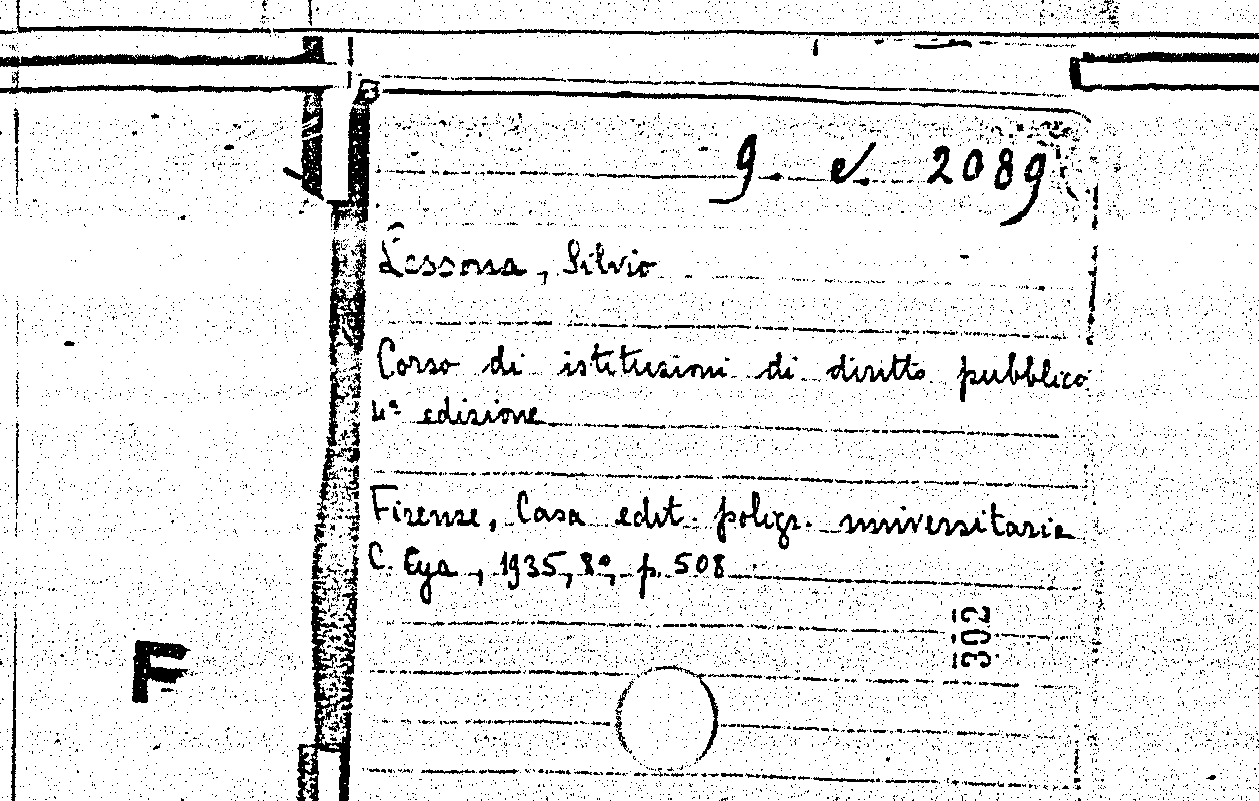 9. e/. 2089
Lessona, Silvio
Corso di istituzioni di diritto pubblico
4ª edizione
Firenze, Casa edit. poligr. universitaria
C. Cya, 1935, 8º, p. 508
302
F